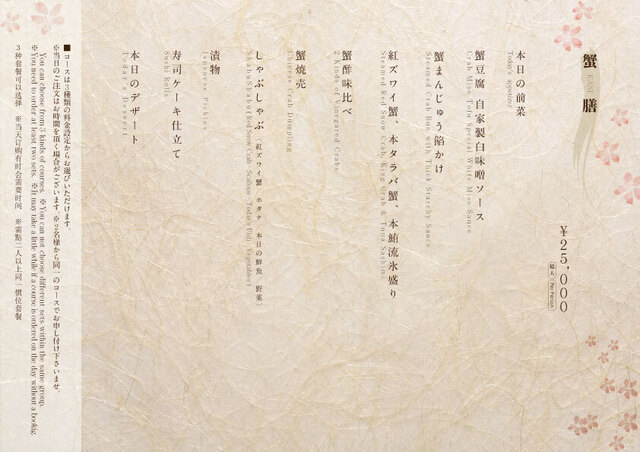 蟹膳
KANI
¥25,000
税込 Per Person
本日の前菜
Today's appetizer
蟹豆腐 自家製白味噌ソース
Crab Miso Tofu Special White Miso Sauce
蟹まんじゅう餡かけ
Steamed Crab Bun with Thick Starchy Sauce
紅ズワイ蟹、本タラバ蟹、本鮪流氷盛り
Steamed Red Snow Crab, King Crab & Tuna Sashimi
蟹酢味比べ
2 Kinds of Vinegared Crabs
蟹焼売
Chinese Crab Dumpling
しゃぶしゃぶ(紅ズワイ蟹 ホタテ 本日の鮮魚 野菜)
Shabu Shabu(Red Snow Crab Scallops Today's Fish Vegetables)
漬物
Japanese Pickles
寿司ケーキ仕立て
Sushi Rolls
本日のデザート
Today's Dessert
■コースは3種類の料金設定からお選びいただけます。
※当日のご注文はお時間を頂く場合がございます。※2名様から同一のコースでお申し付け下さいませ。
You can choose from 3 kinds of courses. ※You can not choose different sets within the same group.
※You need to order at least two sets. ※It may take a little while if a course is ordered on the day without a bookig.
3种套餐可以选择 ※当天订购有时会需要时间 ※需点二人以上同一价位套餐